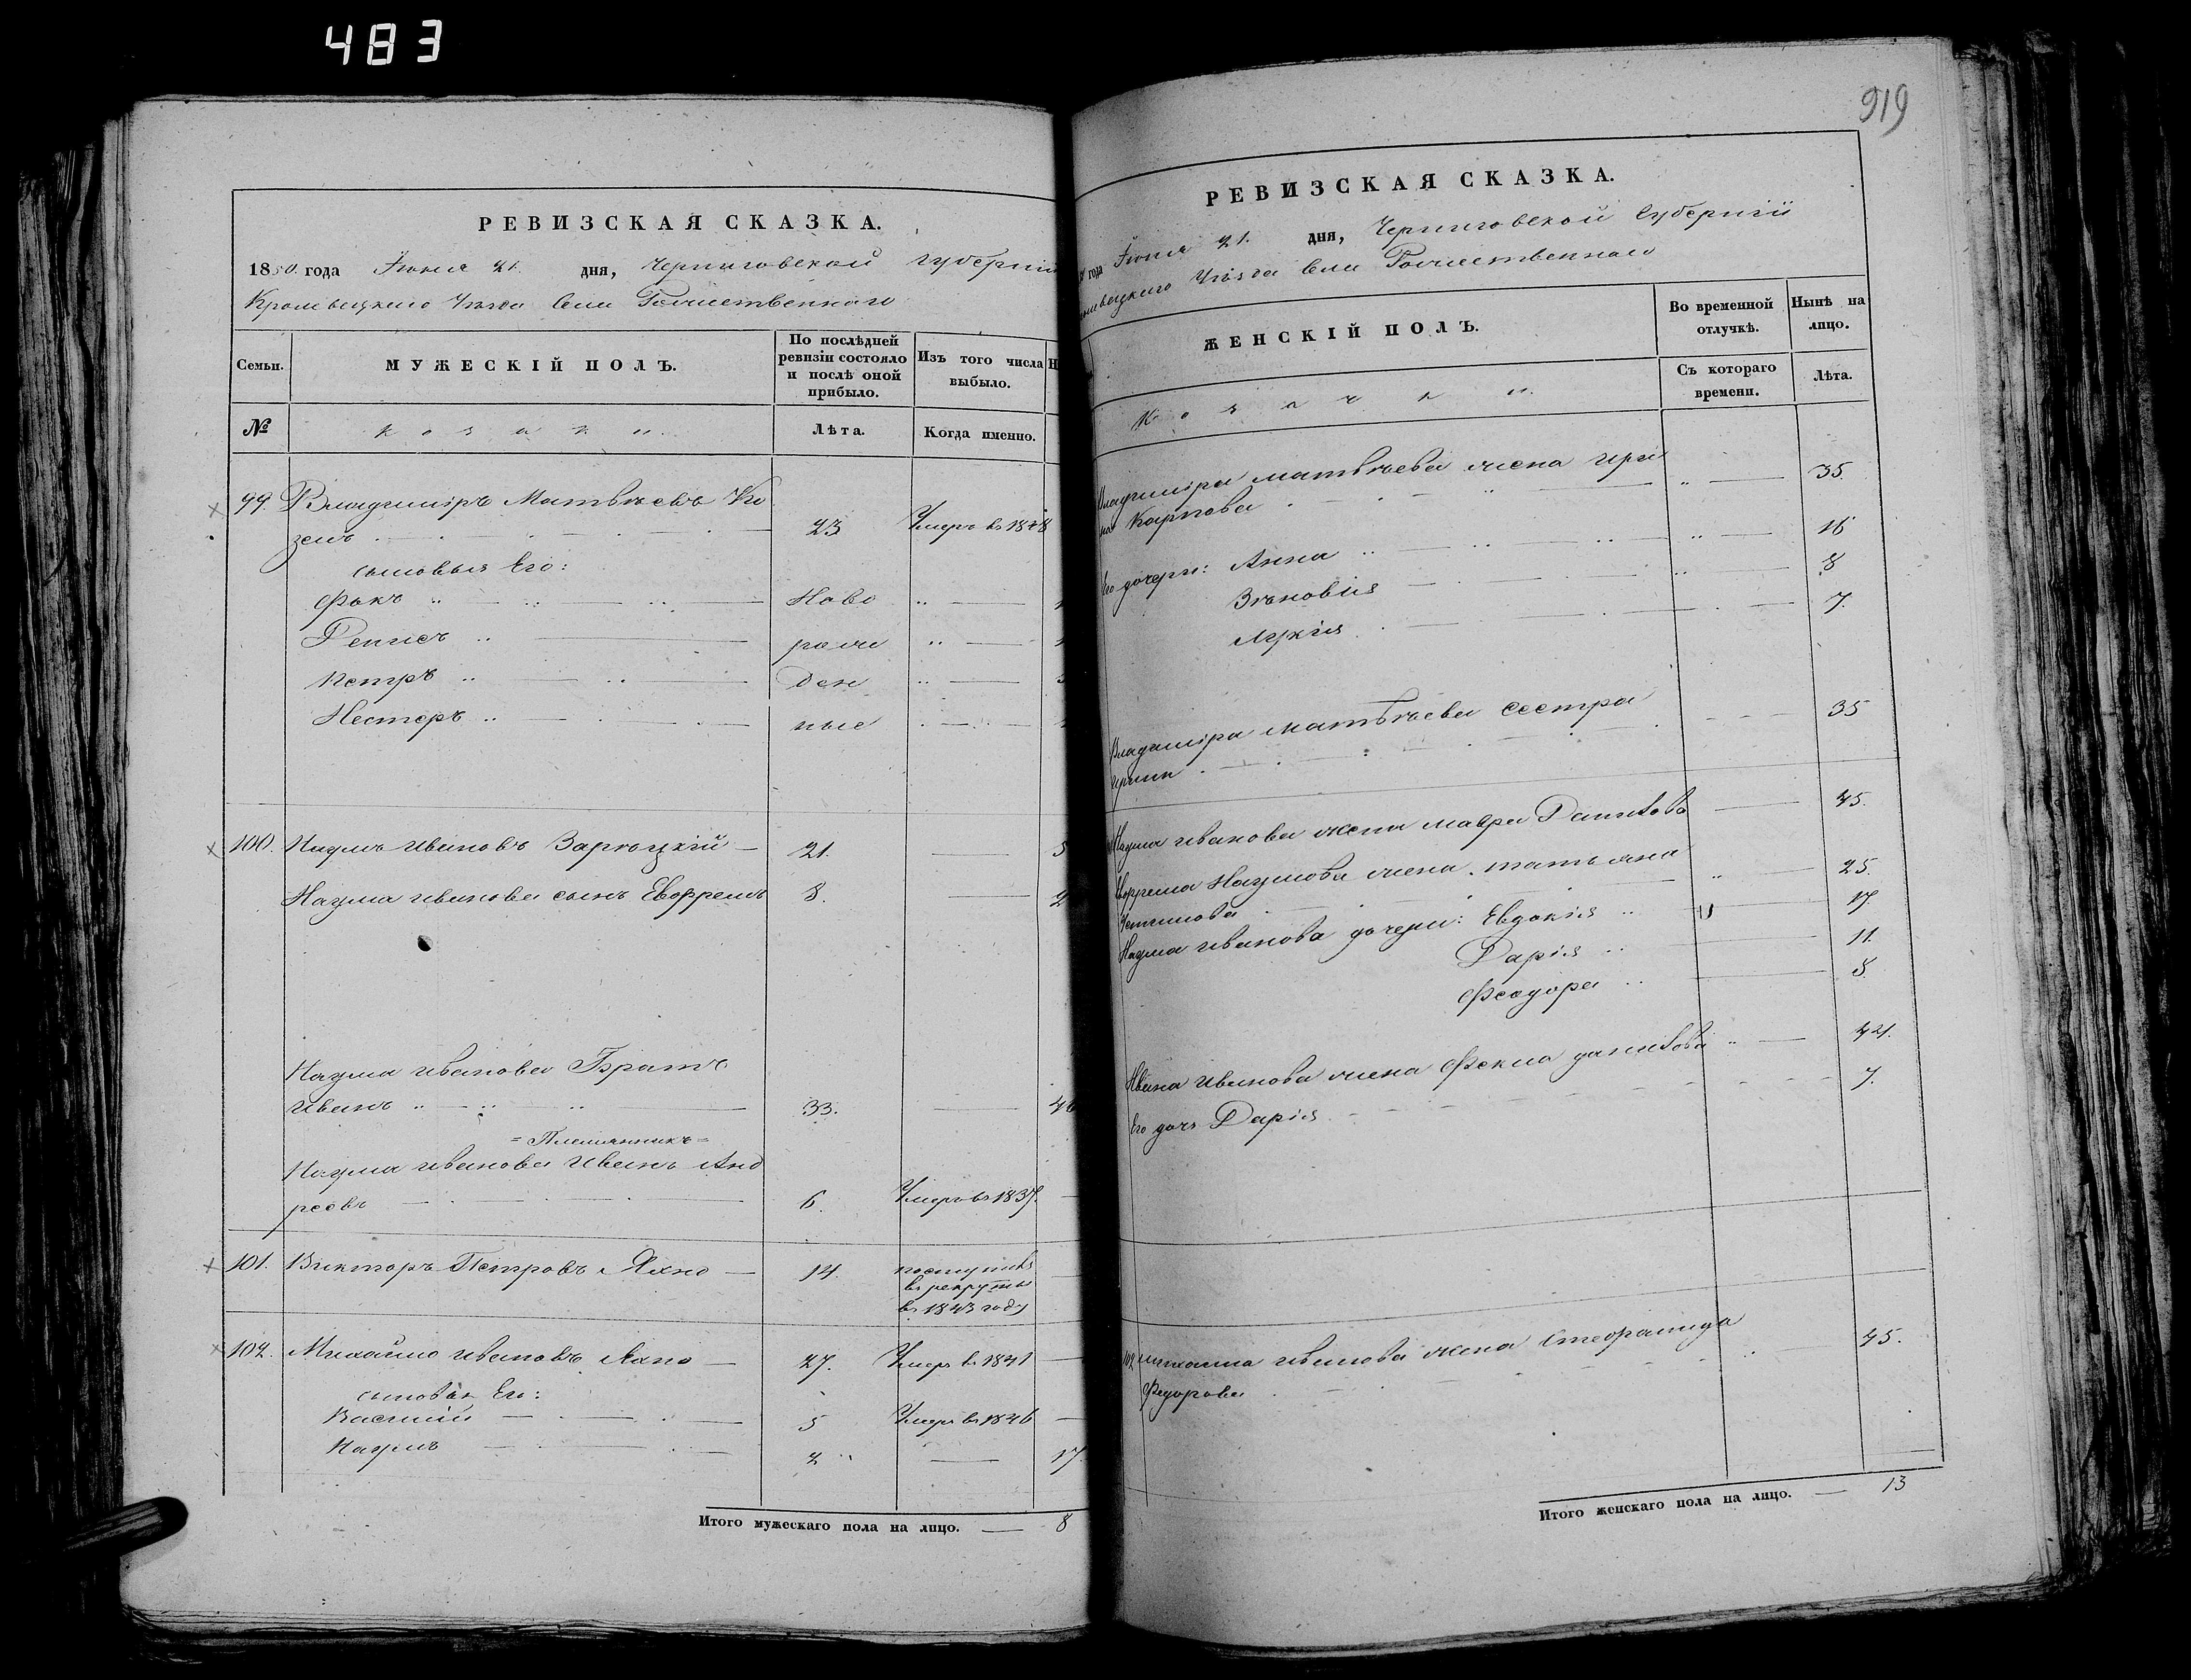 483
РЕВИЗСКАЯ СКАЗКА.
1850. года Іюня 21. дня, Черниговской Губерніи
Кролевецкаго Уѣзда Села Рождественнаго
Семьи. МУЖЕСКІЙ ПОЛЪ. По послѣдней ревизіи состояло и послѣ оной прибыло. Изъ того числа выбыло. Н
№ Козаки. Лѣта. Когда именно.
99. Владиміръ Матвѣевъ Ко
зелъ 23 Умеръ въ 1848
сыновья Его:
Фокъ Ново
Денисъ рож
Петръ Ден
Нестеръ ные
100. Наумъ Ивановъ Зарѣцкій 21.
Наума Иванова сынъ Евфремъ 8.
Наума Иванова Братъ
Иванъ 33. 4
=Племянникъ=
Наума Иванова Иванъ Анд
реевъ 6. Умеръ въ 1837.
101. Викторъ Петровъ Яхно 14. поступилъ
въ рекруты
въ 1843 году
102. Михайло Ивановъ Яхно 27. Умеръ въ 1841
сыновья Его:
Василій 5 Умеръ въ 1846
Наумъ 2 17.
Итого мужескаго пола на лицо. 8
919
РЕВИЗСКАЯ СКАЗКА.
года Іюня 21. дня, Черниговской Губерніи
Уѣзда Села Рождественнаго
ЖЕНСКІЙ ПОЛЪ. Во временной отлучкѣ. Нынѣ на лицо.
Козачки. Съ котораго времени. Лѣта.
Владиміра Матвѣева жена Ири
на Карпова 35.
Его дочери: Анна 16
Зѣновія 8
Лукія 7.
Владиміра Матвѣева сестра 35
Ирина
Наума Иванова жена Мавра Данилова 45.
Евфрема Наумова жена Татьяна
Устимова 25.
Наума Иванова дочери: Евдокія 17
Дарія 11.
Феодора 8.
Ивана Иванова жена Фекла Данилова 42.
Его дочь Дарія 7.
102 Михайла Иванова жена Стефанида
Федорова 45.
Итого женскаго пола на лицо. 13